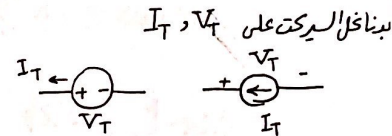 بدنا نحل السيركت على I_T و V_T
V_T
I_T ←
+ -
+ -
←
V_T
I_T